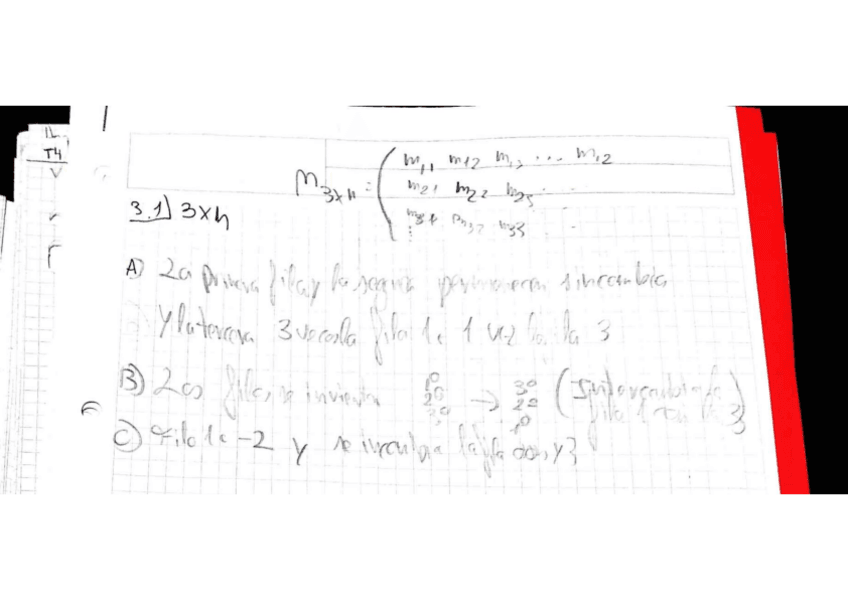 IL
T4
M3xn = ( m11 m12 m13 ... m12
m21 m22 m23 . .
m31 m32 m33 .
3.1] 3xn
A) La primera fila y la segunda permanecen sin cambio
Y la tercera 3 veces la fila 1 1 vez la 3
B) Las filas se invierten 1º 2º 3º → 3º 2º 1º (Intercambia la fila 1 con la 3)
C) Fila 1 -2 y se la fila dos y 3